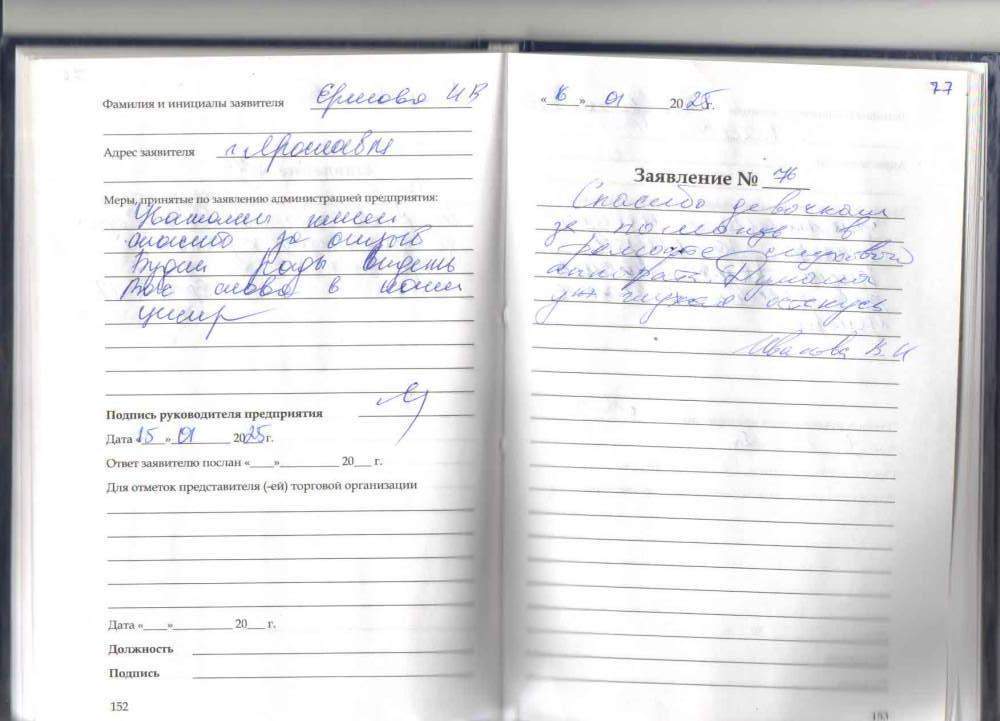 Фамилия и инициалы заявителя Ермсова И В
Адрес заявителя г. Ярославль
Меры, принятые по заявлению администрацией предприятия:
Наталии
спасибо за отзыв
Будем рады видеть
Вас снова в нашем
центре
Подпись руководителя предприятия
Дата «15» 01 2025 г.
Ответ заявителю послан «___»__________ 20___ г.
Для отметок представителя (-ей) торговой организации
Дата «____»__________ 20___ г.
Должность
Подпись
152
77
«16» 01 2025 г.
Заявление № 76
Спасибо девочкам
за помощь в
ремонте слуховой
аппарат. Думала
уж глухая останусь
Иванова В. И
153